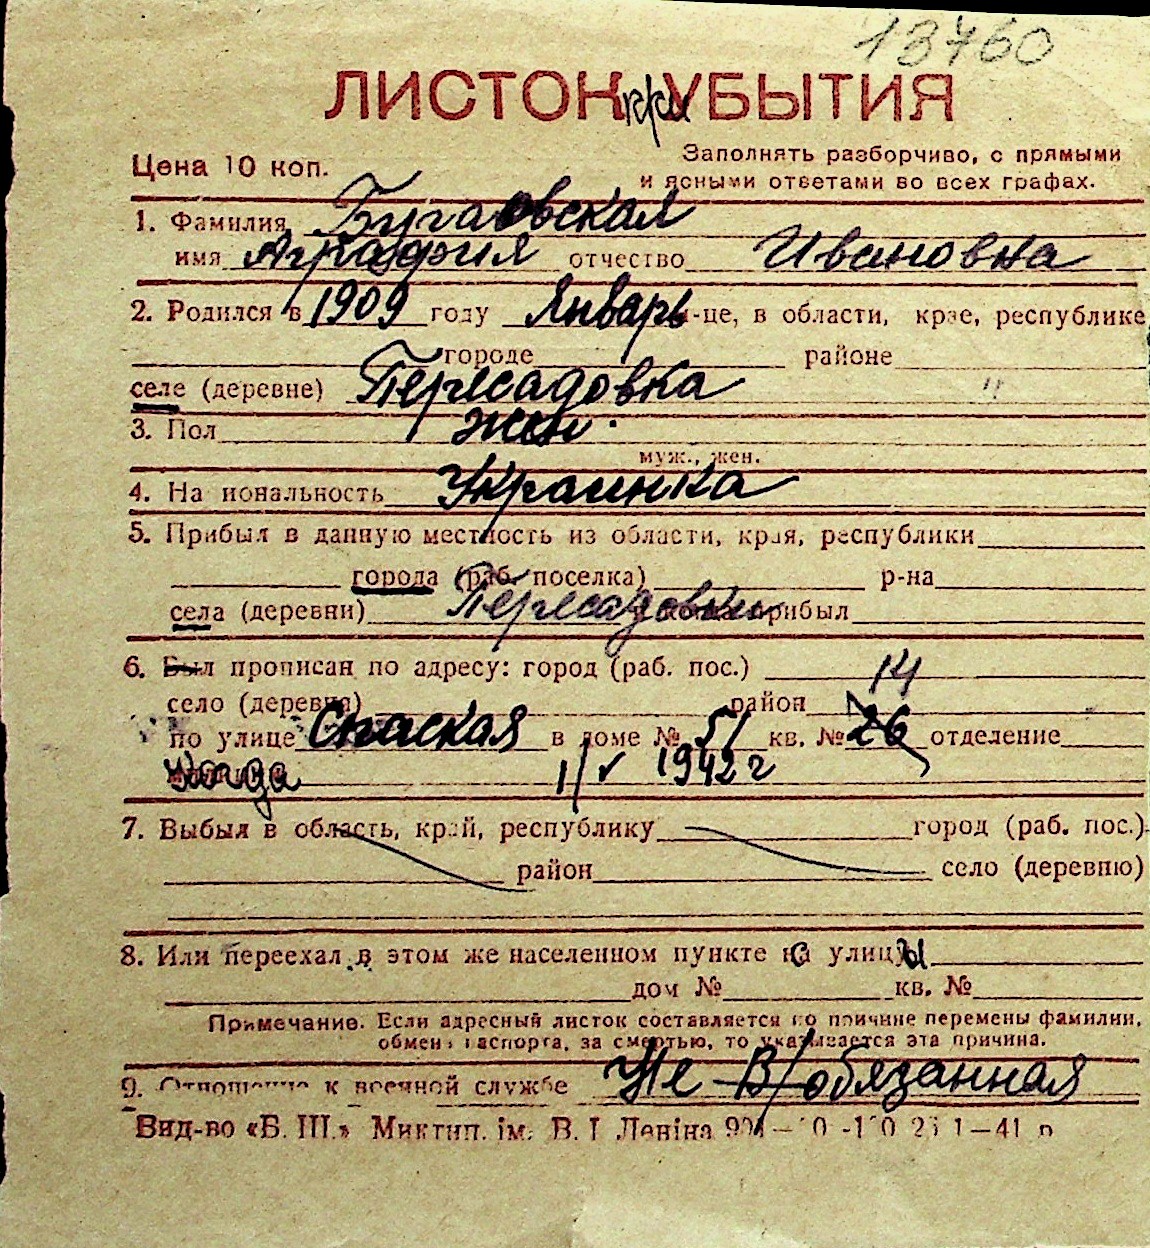 13760
ЛИСТОК приУБЫТИЯ
Цена 10 коп.
Заполнять разборчиво, с прямыми
и ясными ответами во всех графах.
1. Фамилия Бугаовская
имя Аграфия отчество Ивановна
2. Родился в 1909 году Январь м-це, в области, крае, республике
городе районе
селе (деревне) Пересадовка "
3. Пол жен.
муж., жен.
4. Национальность Украинка
5. Прибыл в данную местность из области, края, республики
города (раб. поселка) р-на
села (деревни) Пересадовки прибыл
6. Был прописан по адресу: город (раб. пос.)
14
село (деревня) район
по улице Спаская в доме № 51 кв. № 26 отделение
Когда 1/V 1942 г
7. Выбыл в область, край, республику город (раб. пос.)
район село (деревню)
8. Или переехал в этом же населенном пункте с улицы
дом № кв. №
Примечание. Если адресный листок составляется по причине перемены фамилии,
обмена паспорта, за смертью, то указывается эта причина.
9. Отношение к военной службе Не В/обязанная
Вид-во «Б. Ш.» Миктип. ім. В. І Леніна